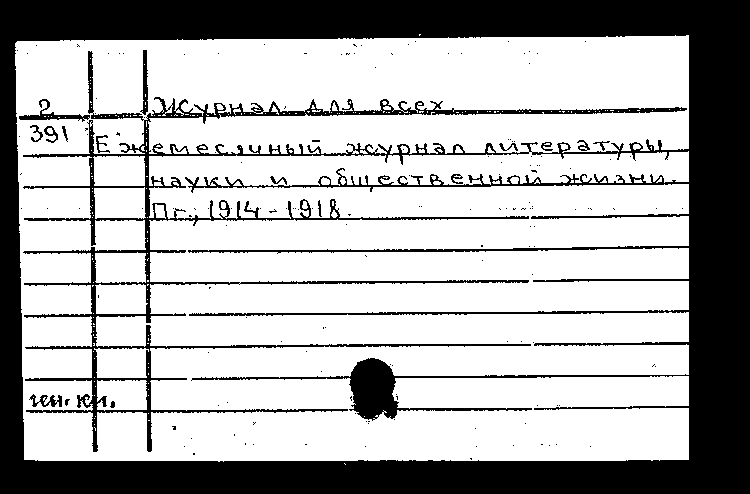 2 Журнал для всех.
391 Ежемесячный журнал литературы,
науки и общественной жизни.
Пг., 1914-1918.
ин. кн.